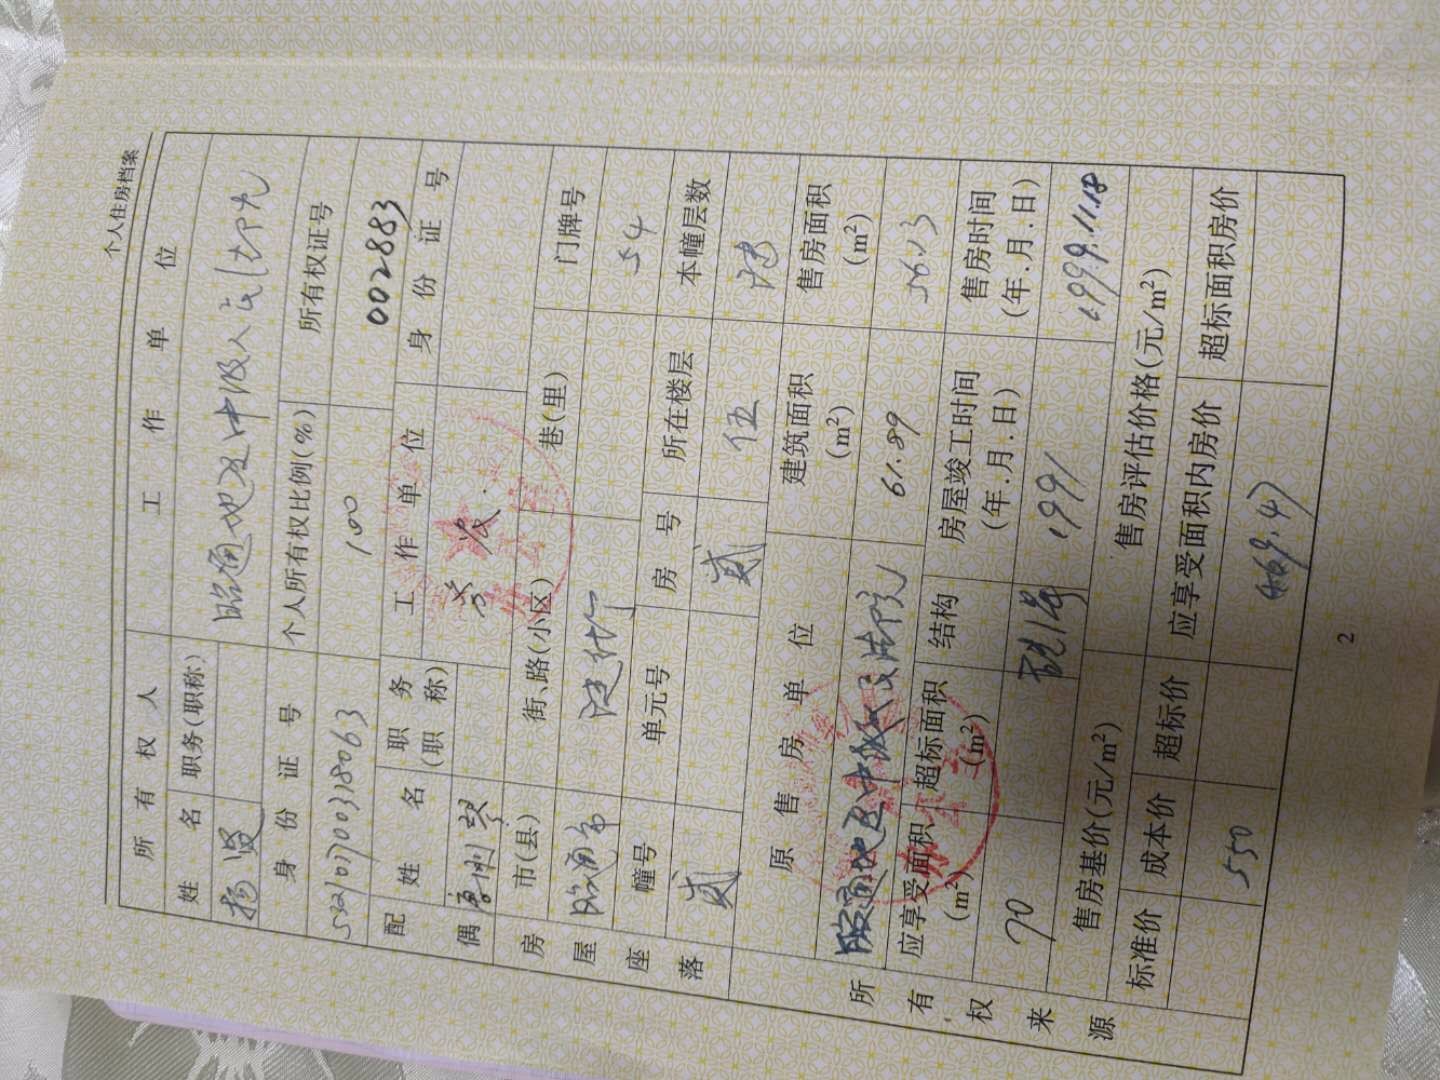 个人住房档案
所有权人 工作单位
姓名 职务(职称)
杨 昭通地区中级人民法院
身份证号 个人所有权比例(%) 所有权证号
532101700318063 100 002883
配偶 姓名 职务(职称) 工作单位 身份证号
房屋座落 市(县) 街、路(小区) 巷(里) 门牌号
昭通市 建设街 54
幢号 单元号 房号 所在楼层 本幢层数
贰 贰 伍
所有权来源 原售房单位 建筑面积(m²) 售房面积(m²)
昭通地区中级人民法院 61.89 56.13
应享受面积(m²) 超标面积(m²) 结构 房屋竣工时间(年.月.日) 售房时间(年.月.日)
70 砖混 1991 1999.11.18
售房基价(元/m²) 售房评估价格(元/m²)
标准价 成本价 超标价 应享受面积内房价 超标面积房价
550 469.47
2